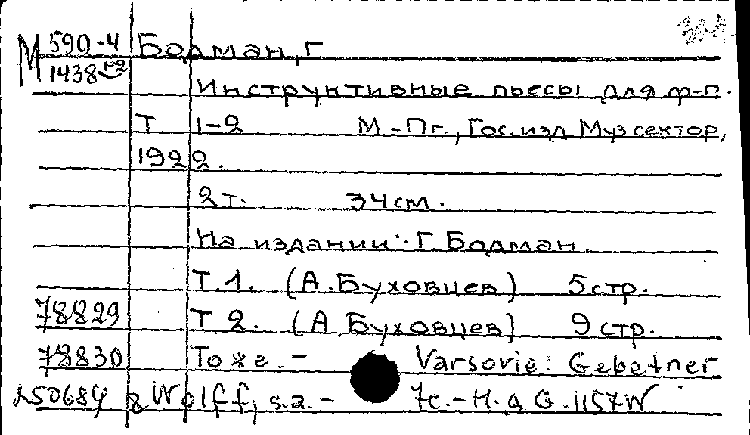 М 590-4 Бодман, Г
1438 1-2
Инструктивные пьесы для ф-п.
Т 1-2 М.-Пг., Гос.изд Музсектор,
1922.
2т. 34см.
На издании: Г Бодман
Т.1. (А.Буховцев) 5стр.
78829 Т 2. (А Буховцев) 9стр.
78830 То же. - Varsovie: Gebetner
250684 & Wolff, s.a. - 7с.-Н.д G.1157W